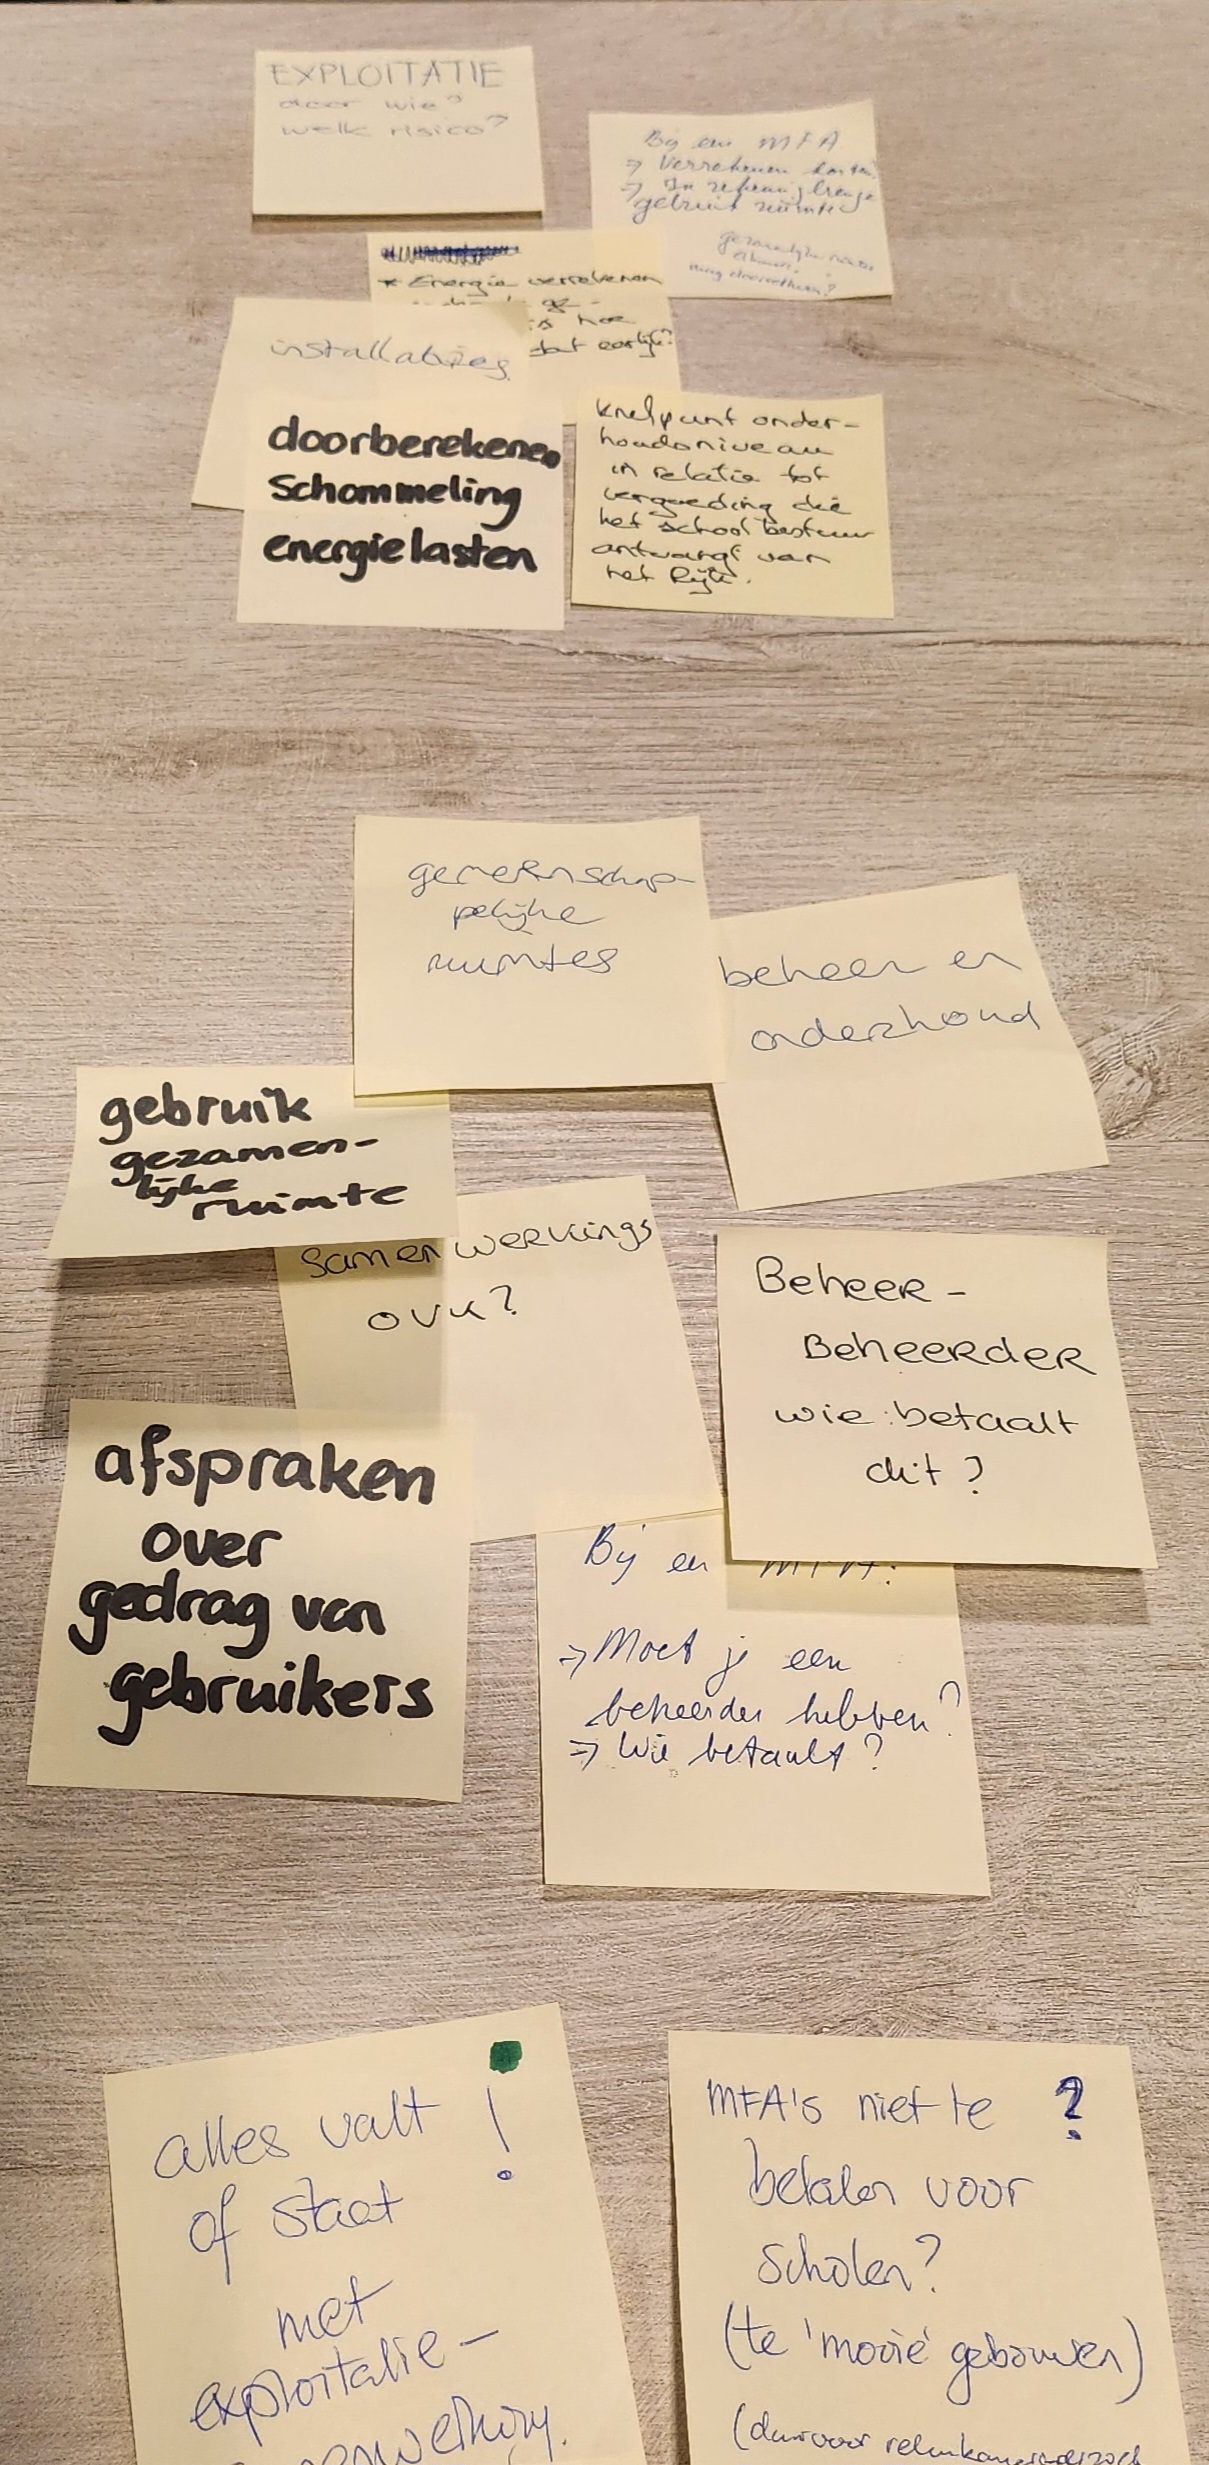 EXPLOITATIE
door wie?
welk risico?
Bij een MFA
→ Verrekenen
→ In
gebruik ruimtes
* Energie verrekenen
is hoe
dat eerlijk?
installaties
doorberekenen
schommeling
energielasten
knelpunt onder-
houdsniveau
in relatie tot
vergoeding die
het schoolbestuur
ontvangt van
het Rijk.
gemeenschap-
pelijke
ruimtes
beheer en
onderhoud
gebruik
gezamen-
lijke
ruimte
samenwerkings
ovk?
Beheer -
Beheerder
wie betaalt
dit?
afspraken
over
gedrag van
gebruikers
Bij een MFA:
→ Moet je een
beheerder hebben?
→ Wie betaalt?
alles valt !
of staat
met
exploitatie-
MFA's niet te ?
betalen voor
scholen?
(te 'mooie' gebouwen)
(daarvoor